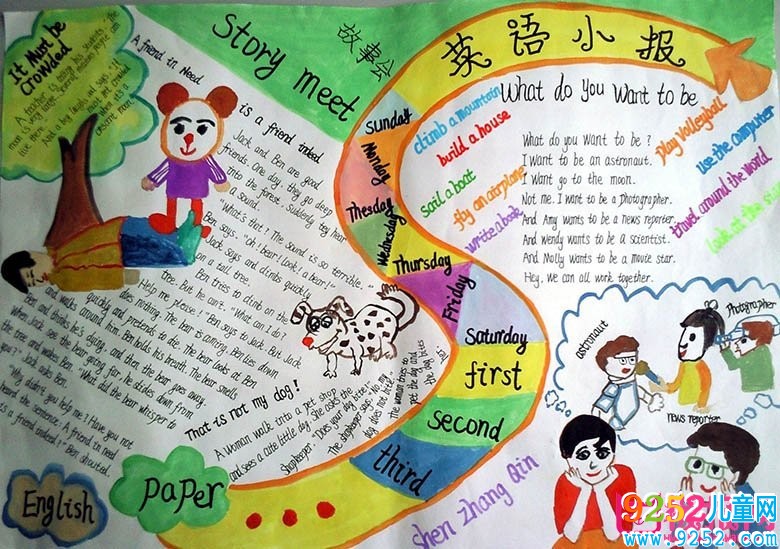 It Must be
Crowded
Story meet
故事会
英语小报
A friend in Need
is a friend indeed
Jack and Ben are good
friends. One day, they go deep
into the forest. Suddenly they hear
a sound.
"What's that? The sound is so terrible."
Ben says. "Oh! bear! Look! a bear!"
Jack says and climbs quickly
on a tall tree.
Ben tries to climb on the
tree. But he can't. "What can I do?
Help me please!" Ben says to Jack. But Jack
does nothing. The bear is coming. Ben lies down
quickly and pretends to die. The bear looks at Ben
and walks around him. Ben holds his breath. The bear smells
Ben and thinks he's dying, and then the bear goes away.
When Jack see the bear going far, he slides down from
the tree and wakes Ben. "What did the bear whisper to
you?" Jack asks Ben.
"Why didn't you help me? Have you not
heard the sentence: A friend in need
is a friend indeed?" Ben shouted.
That is not my dog!
A woman walk into a pet shop
and sees a cute little dog. She asks the
shopkeeper. "Does your dog bite?"
The shopkeeper says: "No, my
dog does not bite."
The woman tries to
pet the dog and
the dog bites
Sunday
Monday
Thesday
Wednesday
Thursday
Friday
Saturday
first
second
third
climb a mountain
build a house
sail a boat
fly an airplane
write a book
What do you want to be
What do you want to be?
I want to be an astronaut.
I want go to the moon.
Not me. I want to be a photographer.
And Amy wants to be a news reporter.
And Wendy wants to be a scientist.
And Molly wants to be a movie star.
Hey, we can all work together.
play volleyball
use the computer
travel around the world
look at the
astronaut
news reporter
Photographer
English
paper
chen zhang Qin
9252儿童网
www.9252.com